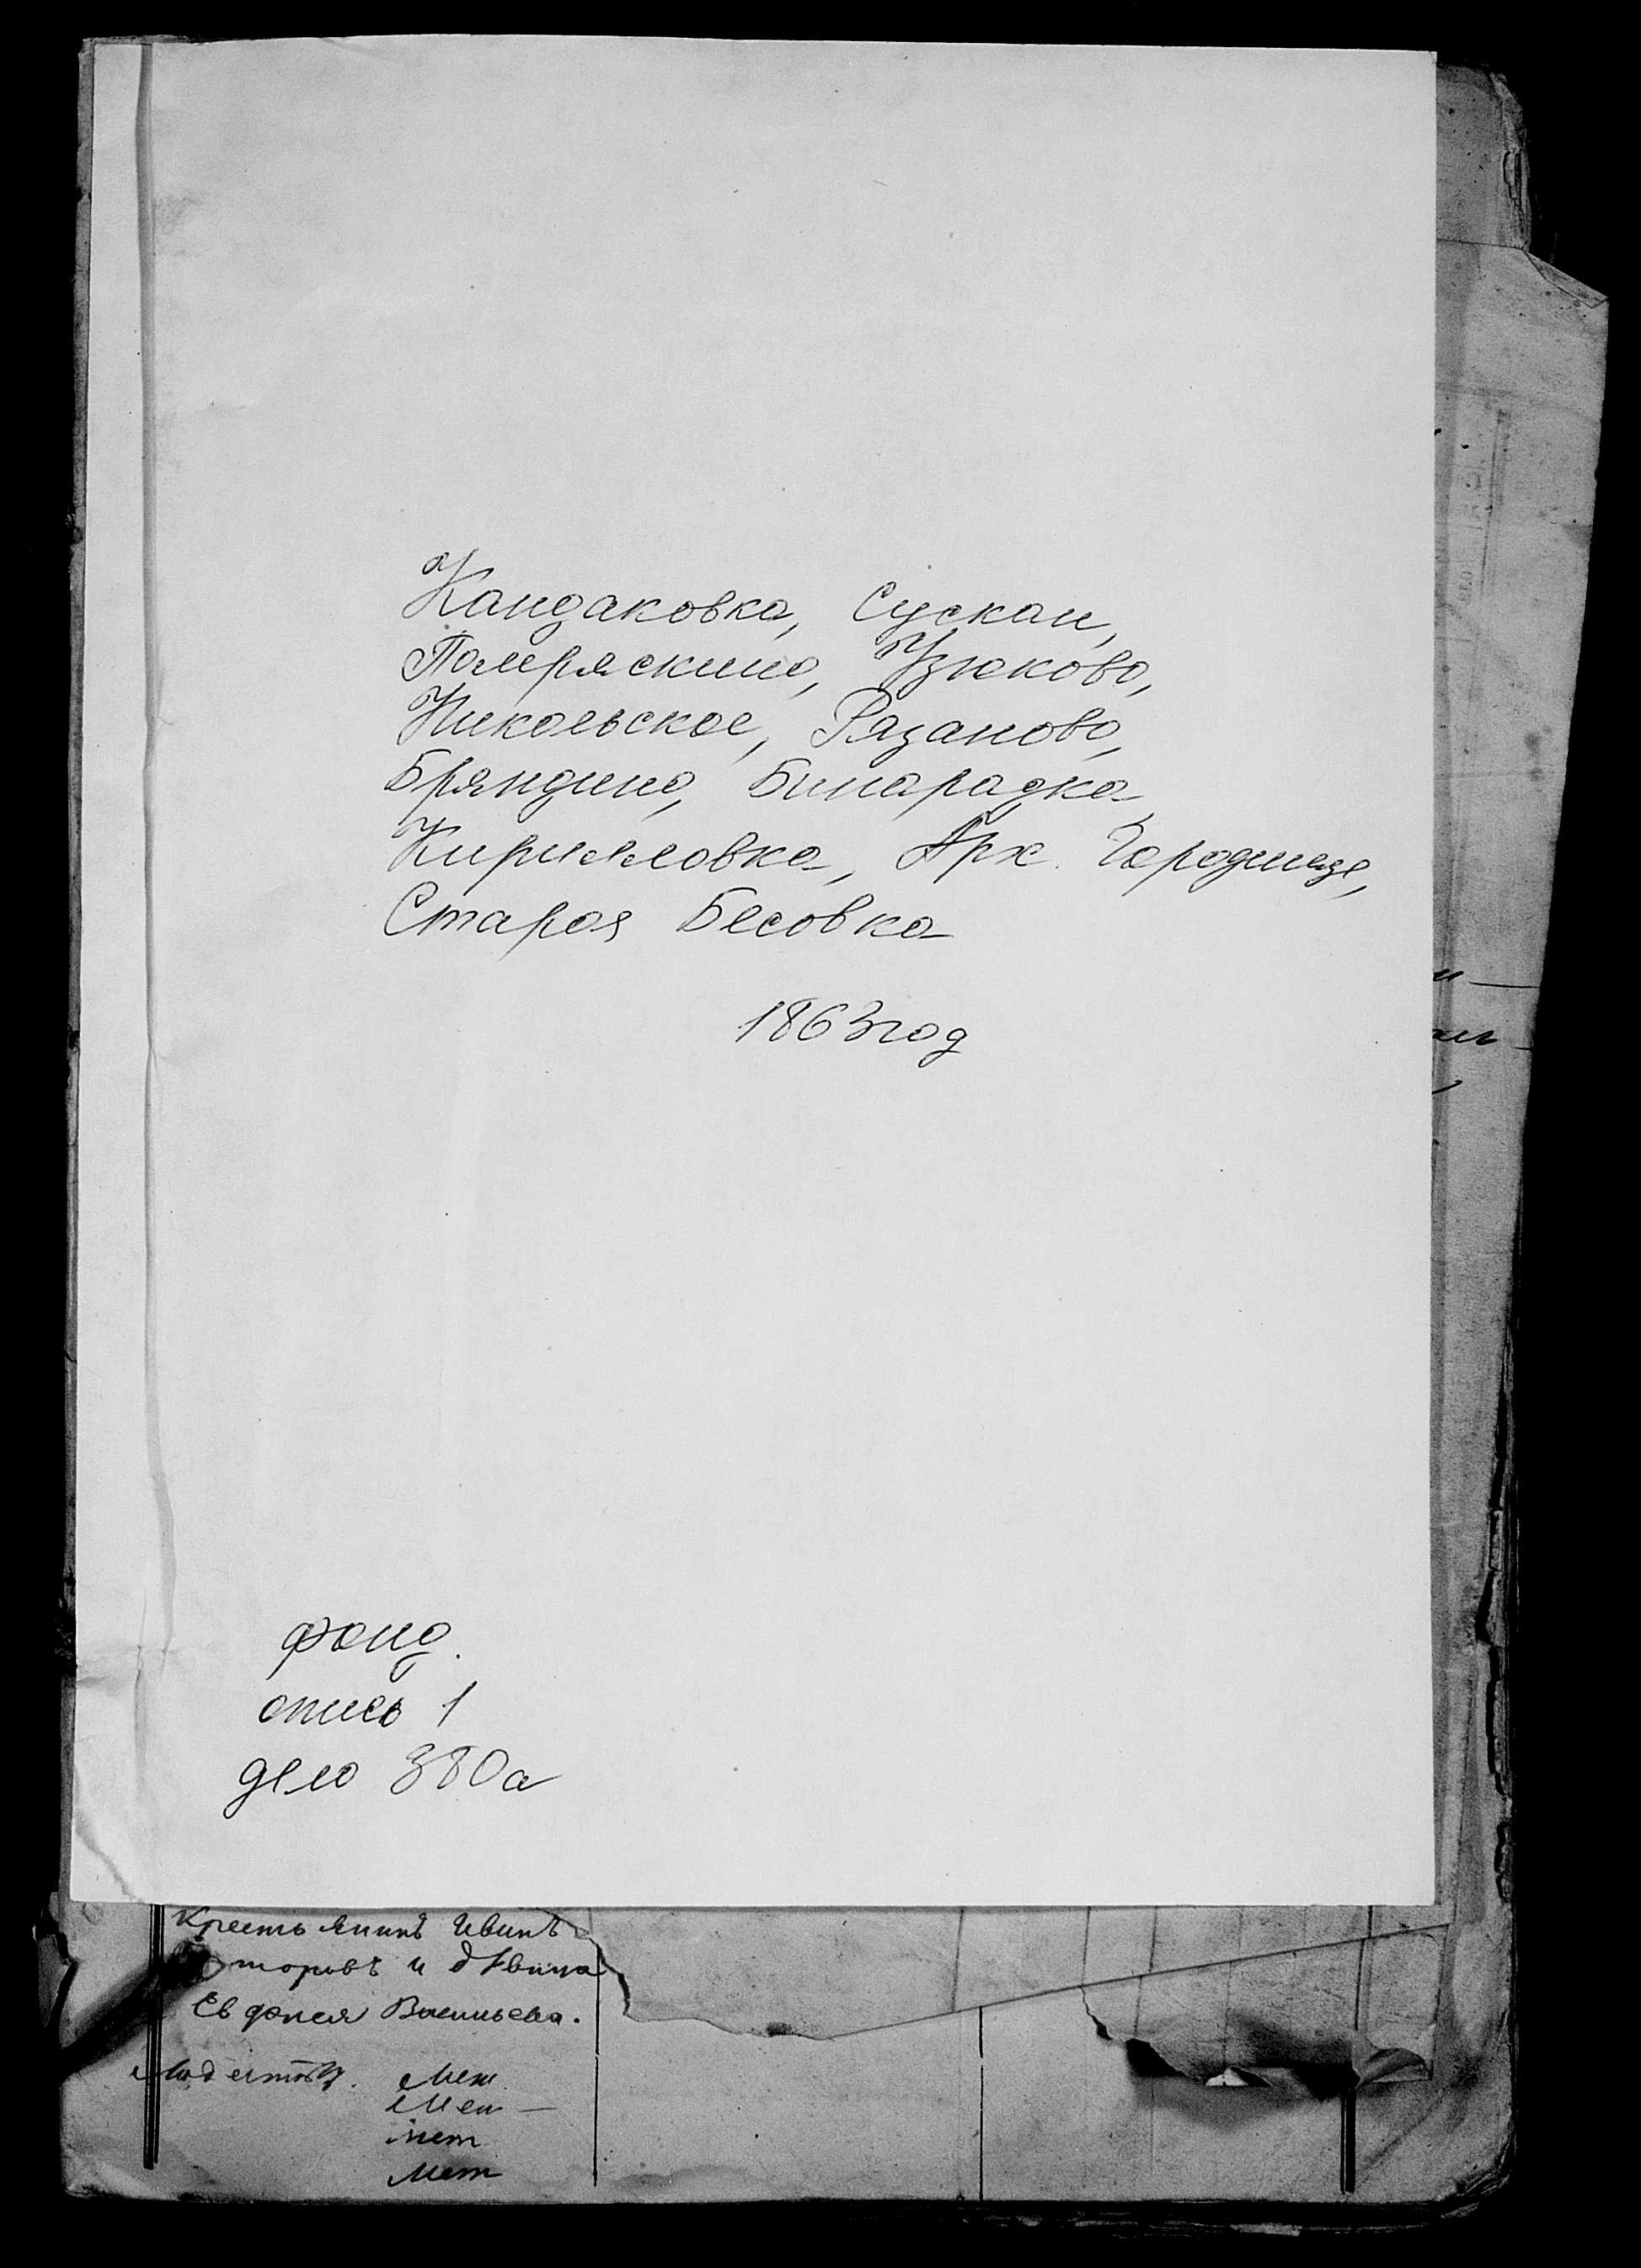 Кандаковка, Сускан,
Помряскино, Узюково,
Никольское, Рязаново,
Бряндино, Бинарадка
Кирилловка, Арх. Городище,
Старая Бесовка
1863 год
фонд.
опись 1
дело 380а
Крестьянинъ
и дѣвица
Евдокея Васильева.